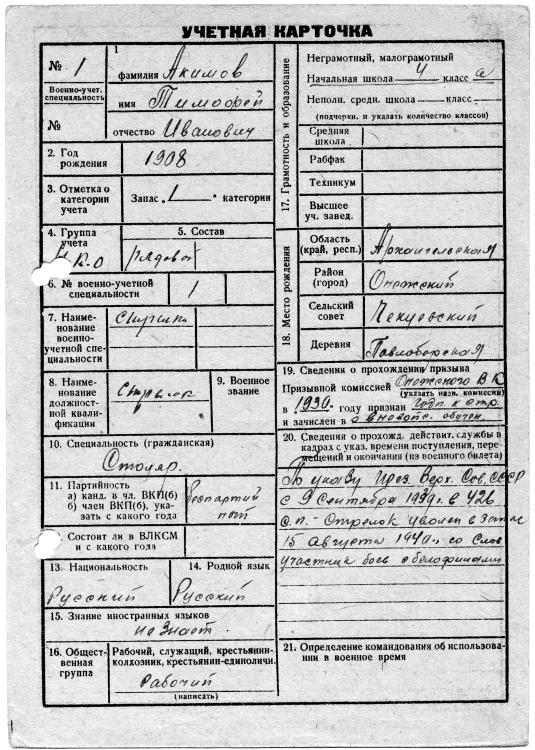 УЧЕТНАЯ КАРТОЧКА
№ 1
Военно-учет. специальность
№
1
фамилия Акимов
имя Тимофей
отчество Иванович
2. Год рождения 1908
3. Отметка о категории учета
Запас 1 категории
4. Группа учета
К.О
5. Состав
рядовой
6. № военно-учетной специальности
1
7. Наименование военно-учетной специальности
8. Наименование должностной квалификации
Стрелок
9. Военное звание
10. Специальность (гражданская)
Столяр.
11. Партийность
а) канд. в чл. ВКП(б)
б) член ВКП(б), указать с какого года
беспартийный
Состоит ли в ВЛКСМ и с какого года
13. Национальность
Русский
14. Родной язык
Русский
15. Знание иностранных языков
не знает.
16. Общественная группа
Рабочий, служащий, крестьянин-
колхозник, крестьянин-единоличн.
Рабочий
(написать)
17. Грамотность и образование
Неграмотный, малограмотный
Начальная школа 4 класс а
Неполн. средн. школа класс
(подчеркн. и указать количество классов)
Средняя школа
Рабфак
Техникум
Высшее уч. завед.
18. Место рождения
Область (край, респ.) Архангельская
Район (город) Онежский
Сельский совет Чекуевский
Деревня Павловборская
19. Сведения о прохождении призыва
Призывной комиссией Онежского В К
(указать назв. комиссии)
в 1930 году признан годн. к стр.
и зачислен в вневойс. обучен.
20. Сведения о прохожд. действит. службы в
кадрах с указ. времени поступления, пере-
мещений и окончания (из военного билета)
По указу През. Верх. Сов. СССР
с 9 Сентября 1939 г. в 426
с.п. - Стрелок уволен в запас
15 Августа 1940 г. со слов
участник боев с белофинами
21. Определение командования об использова-
нии в военное время